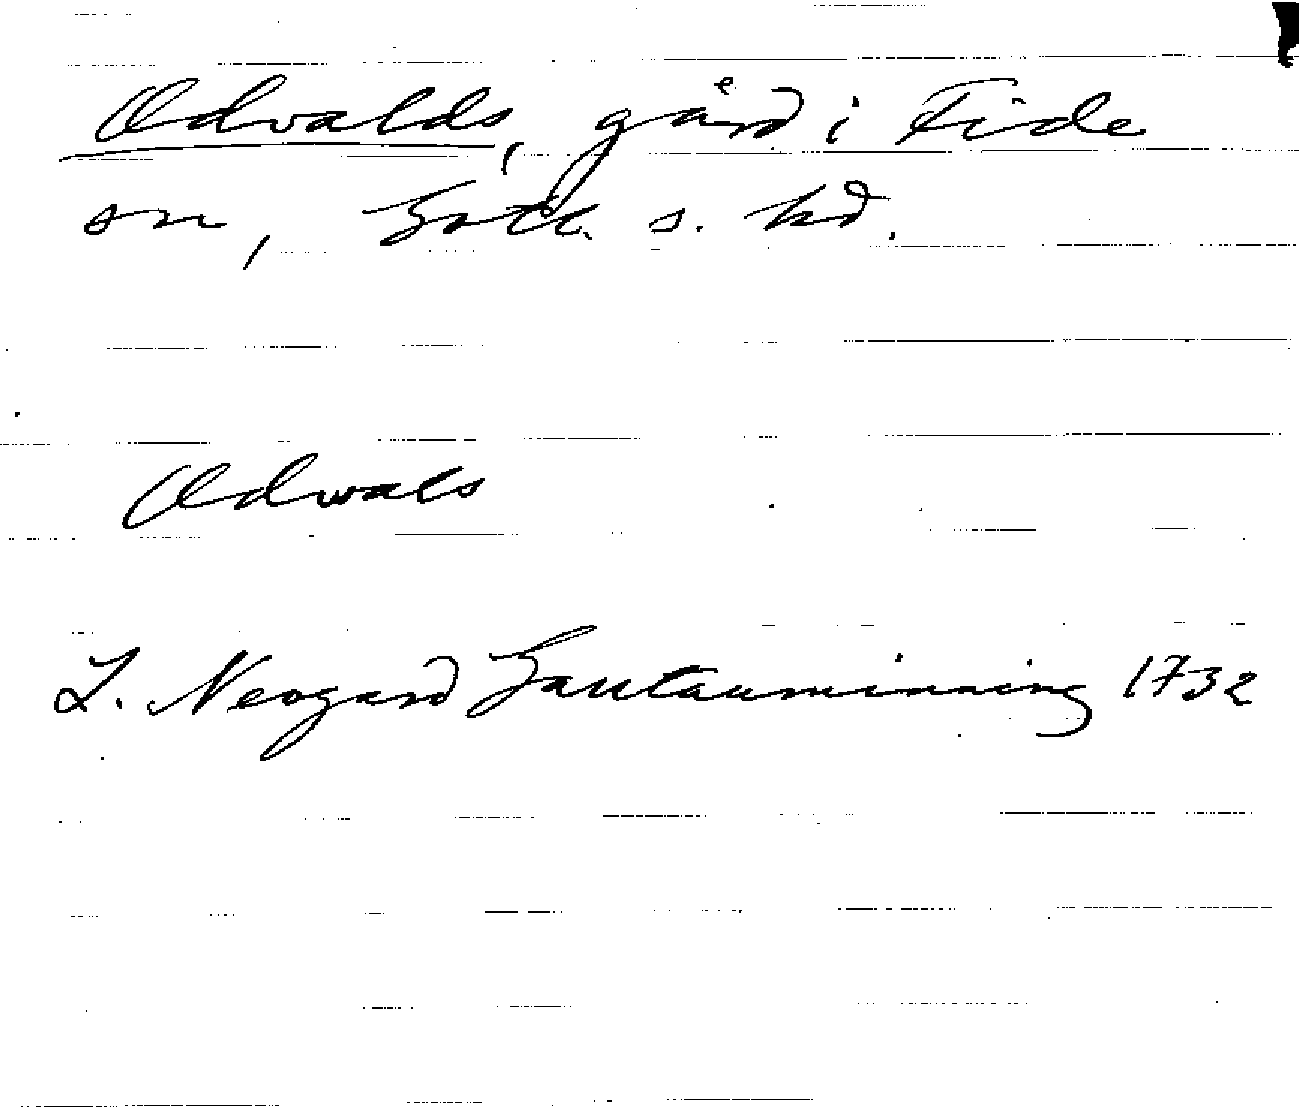 Odvalds, gård i Fide
sn, Gotl. s. hd.
Odwals
L. Neogard Gautauminning 1732